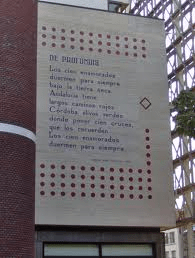 DE PROFUNDIS
Los cien enamorados
duermen para siempre
bajo la tierra seca.
Andalucía tiene
largos caminos rojos.
Córdoba olivos verdes
donde poner cien cruces,
que los recuerden.
Los cien enamorados
duermen para siempre.